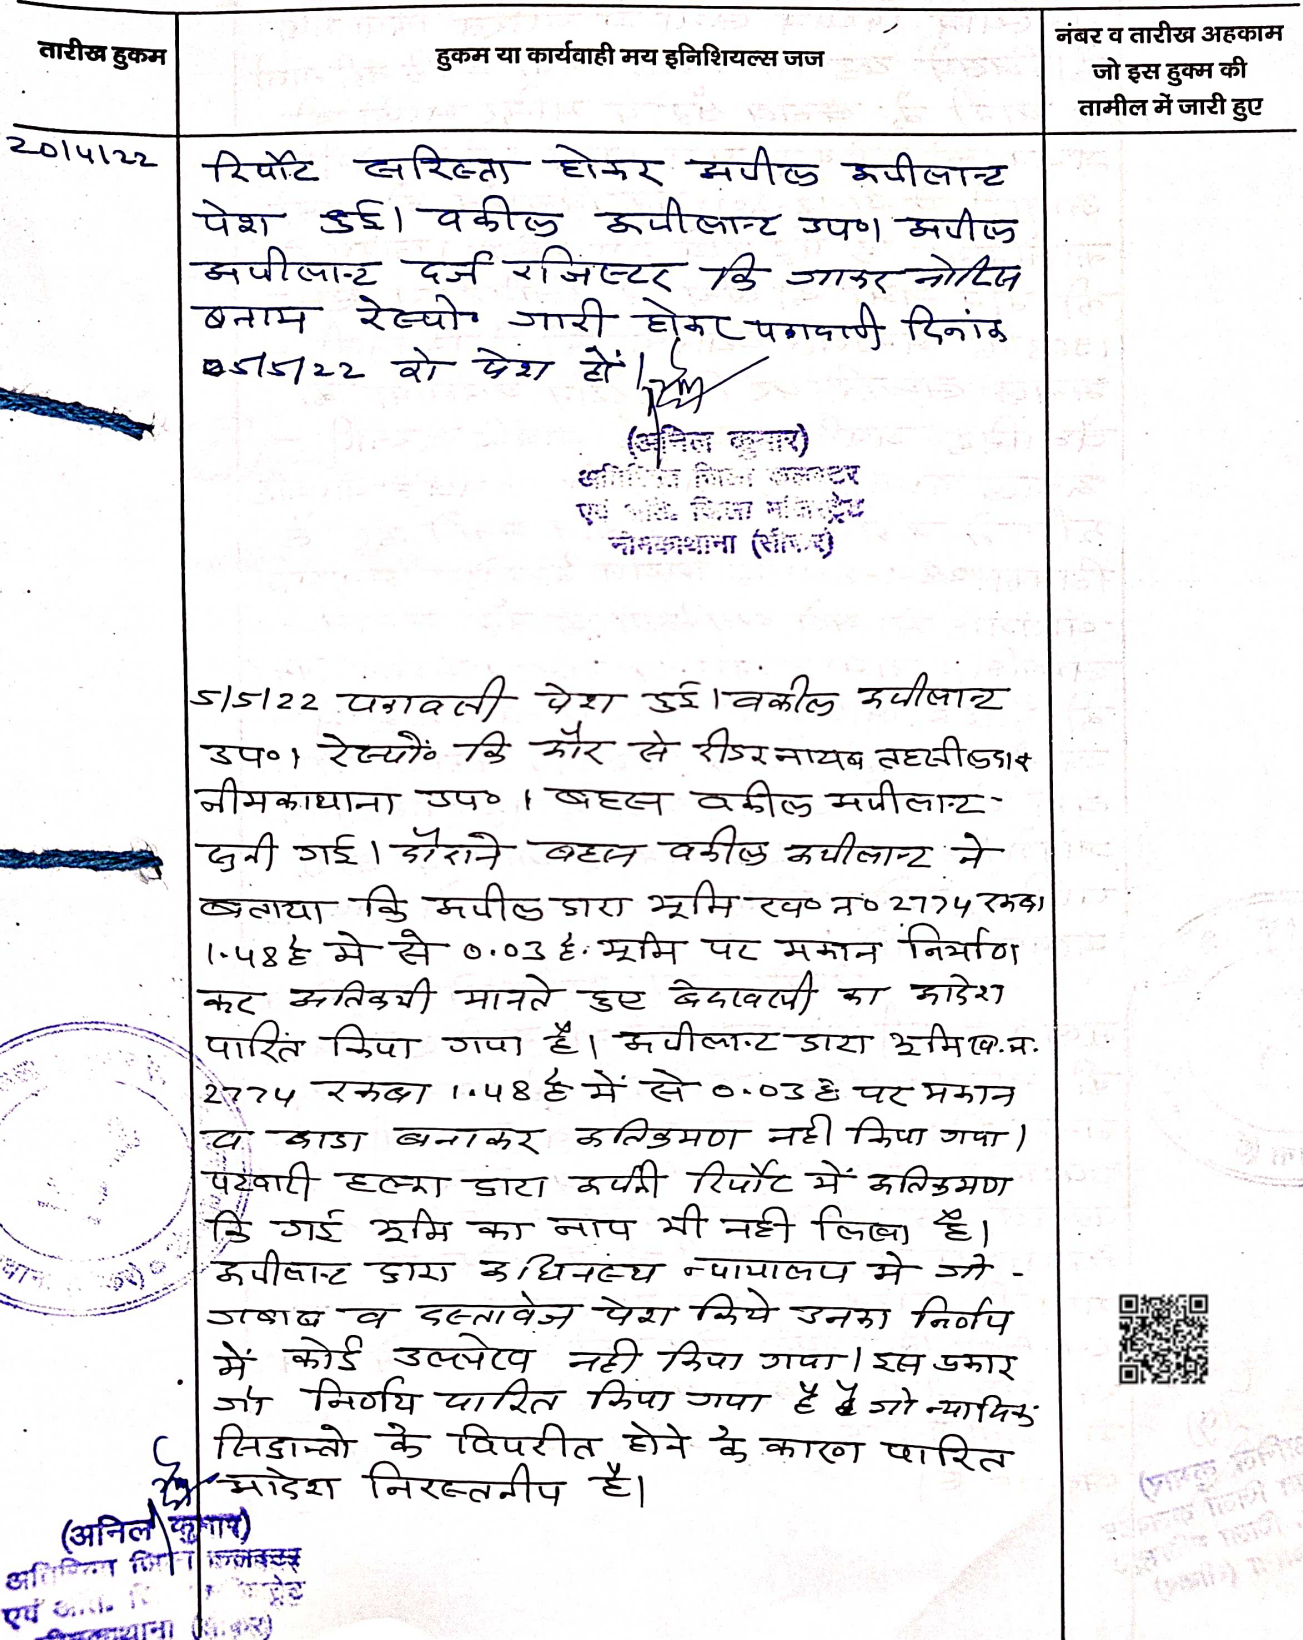 तारीख हुकम
हुकम या कार्यवाही मय इनिशियल्स जज
नंबर व तारीख अहकाम
जो इस हुक्म की
तामील में जारी हुए
20/4/22
रिर्पोट सरिस्ता होकर अपील अपीलान्ट
पेश हुई। वकील अपीलान्ट उप०। अपील
अपीलान्ट दर्ज रजिस्टर कि जाकर नोटिस
बनाम रेस्पो० जारी होकर पत्रावली दिनांक
05/5/22 को पेश हों।
(अनिल कुमार)
अतिरिक्त जिला कलक्टर
एवं अति. जिला मजिस्ट्रेट
नीमकाथाना (सीकर)
5/5/22 पत्रावली पेश हुई। वकील अपीलान्ट
उप०। रेस्पों० कि और से रीडर नायब तहसीलदार
नीमकाथाना उप०। बहस वकील अपीलान्ट
सुनी गई। दौराने बहस वकील अपीलान्ट ने
बताया कि अपील द्वारा भूमि ख० न० 2774 रकबा
1.48 है मे से 0.03 है. भूमि पर मकान निर्माण
कर अतिक्रमी मानते हुए बेदखली का आदेश
पारित किया गया है। अपीलान्ट द्वारा भूमि ख.न.
2774 रकबा 1.48 है में से 0.03 है पर मकान
व बाडा बनाकर अतिक्रमण नही किया गया।
पटवारी हल्का द्वारा अपनी रिर्पोट में अतिक्रमण
कि गई भूमि का नाप भी नही लिखा है।
अपीलान्ट द्वारा अधिनस्थ न्यायालय मे जो -
जबाब व दस्तावेज पेश किये उनका निर्णय
में कोई उल्लेख नही किया गया। इस प्रकार
जो निर्णय पारित किया गया है जो न्यायिक
सिद्धान्तो के विपरीत होने के कारण पारित
आदेश निरस्तनीय है।
(अनिल कुमार)
अतिरिक्त जिला कलक्टर
एवं अति.
नीमकाथाना (सीकर)